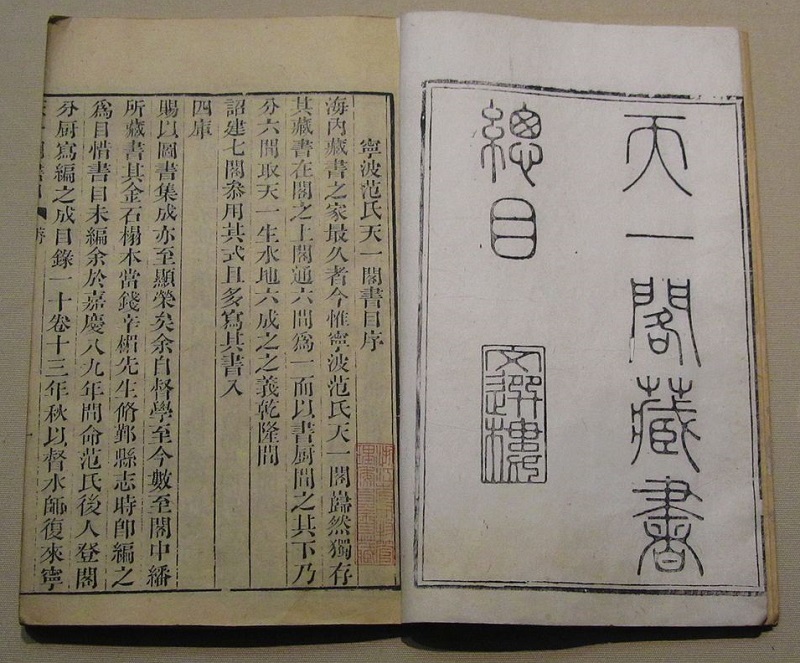 天一閣藏書
總目
文選樓
寧波范氏天一閣書目序
海內藏書之家最久者今惟寧波范氏天一閣巋然獨存
其藏書在閣之上閣通六間爲一而以書厨間之其下乃
分六間取天一生水地六成之之義乾隆間
詔建七閣叅用其式且多寫其書入
四庫
賜以圖書集成亦至顯榮矣余自督學至今數至閣中繙
所藏書其金石搨本當錢辛楣先生脩鄞縣志時卽編之
爲目惜書目未編余於嘉慶八九年間命范氏後人登閣
分厨寫編之成目錄一十卷十三年秋以督水師復來寧